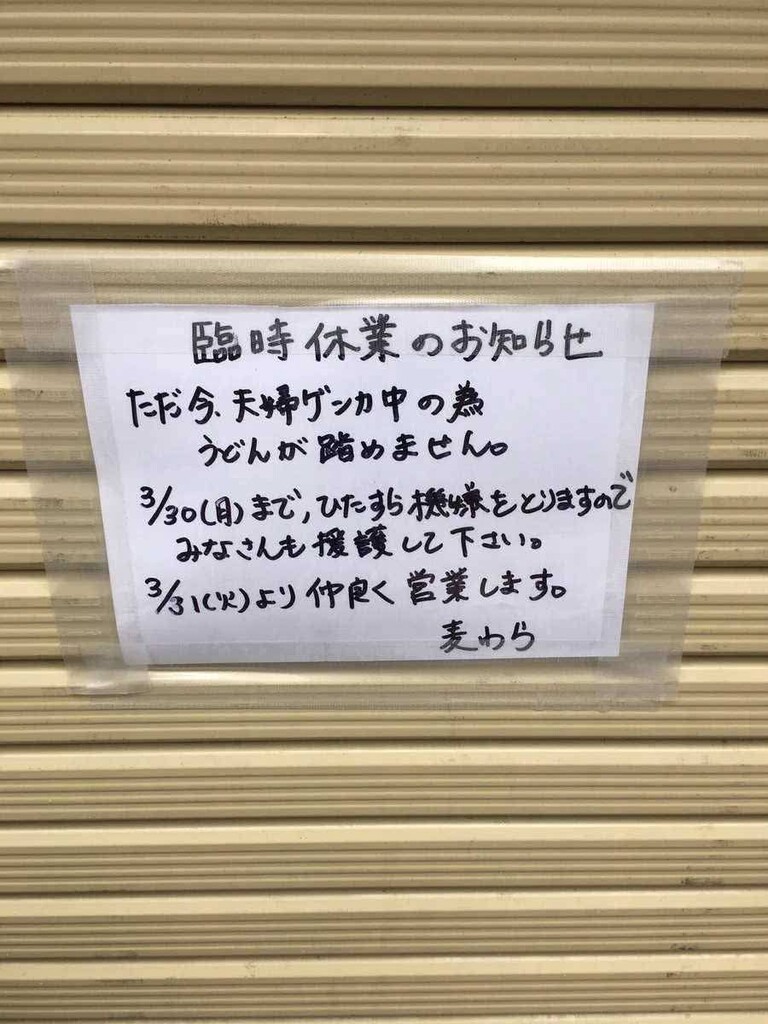 臨時休業のお知らせ
ただ今、夫婦ゲンカ中の為
うどんが踏めません。
3/30(月)まで,ひたすら機嫌をとりますので
みなさんも援護して下さい。
3/31(火)より仲良く営業します。
麦わら